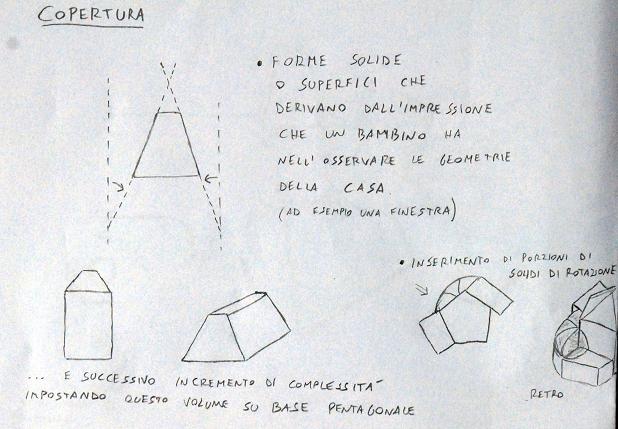 COPERTURA
• FORME SOLIDE
O SUPERFICI CHE
DERIVANO DALL'IMPRESSIONE
CHE UN BAMBINO HA
NELL'OSSERVARE LE GEOMETRIE
DELLA CASA.
(AD ESEMPIO UNA FINESTRA)
• INSERIMENTO DI PORZIONI DI
SOLIDI DI ROTAZIONE
... E SUCCESSIVO INCREMENTO DI COMPLESSITÀ
IMPOSTANDO QUESTO VOLUME SU BASE PENTAGONALE
RETRO